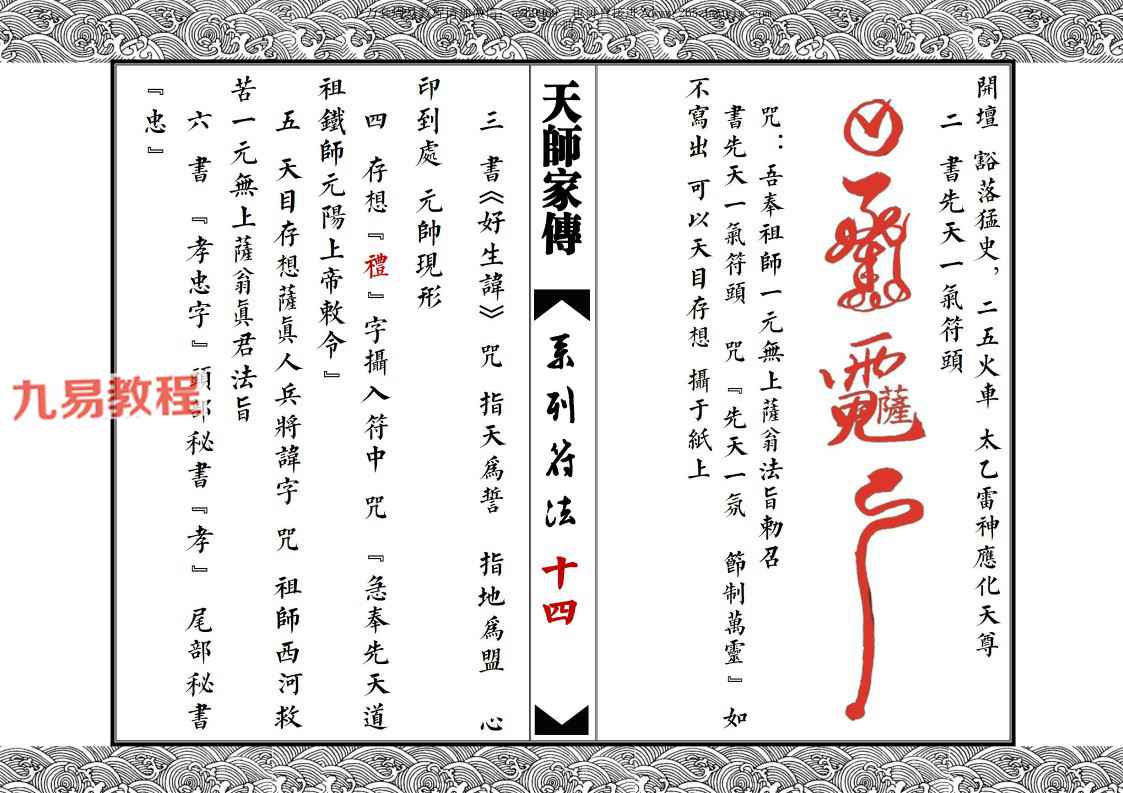 開壇 豁落猛史，二五火車 太乙雷神應化天尊
二 書先天一氣符頭
薩
咒：吾奉祖師一元無上薩翁法旨勅召
書先天一氣符頭 咒『先天一氛 節制萬靈』如
不寫出 可以天目存想 攝于紙上
天師家傳
系列符法
十四
三 書《好生諱》咒 指天為誓 指地為盟 心
印到處 元帥現形
四 存想『禮』字攝入符中 咒 『急奉先天道
祖鐵師元陽上帝敕令』
五 天目存想薩真人兵將諱字 咒 祖師西河救
苦一元無上薩翁真君法旨
六 書 『孝忠字』頭部秘書『孝』 尾部秘書
『忠』
九易教程